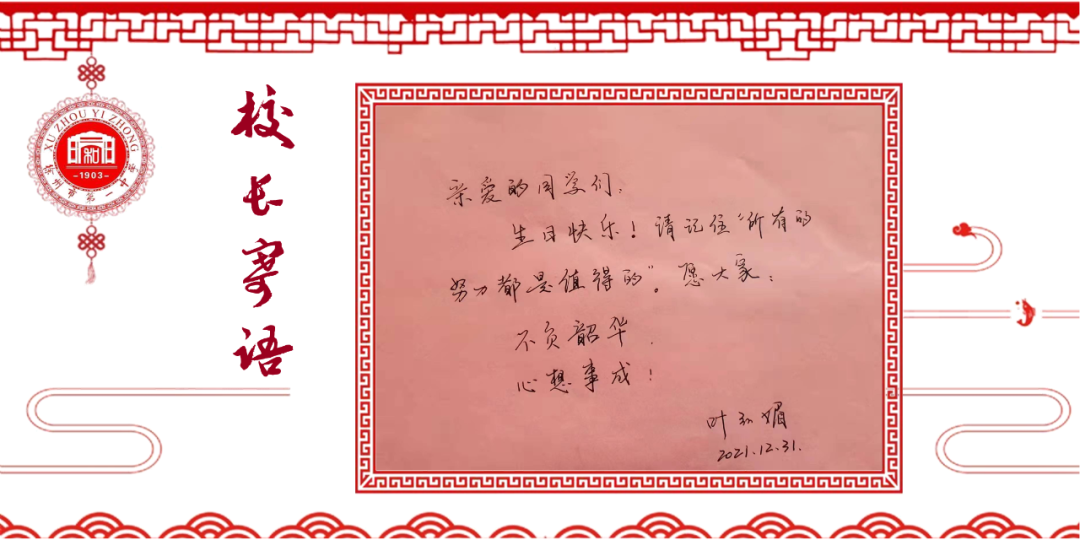 XU ZHOU YI ZHONG
1903
徐州市第一中学
校长寄语
亲爱的同学们:
生日快乐!请记住“所有的
努力都是值得的”。愿大家:
不负韶华.
心想事成!
叶 媚
2021.12.31.